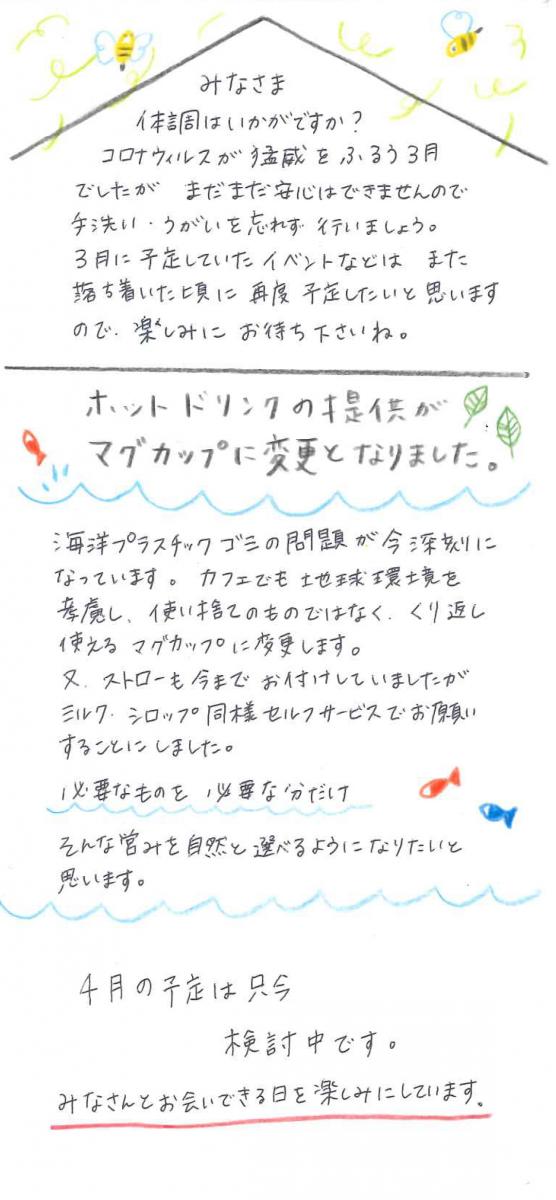 みなさま
体調はいかがですか?
コロナウィルスが猛威をふるう3月
でしたが まだまだ安心はできませんので
手洗い・うがいを忘れず行いましょう。
3月に予定していたイベントなどは また
落ち着いた頃に 再度 予定したいと思います
ので、楽しみに お待ち下さいね。
ホットドリンクの提供が
マグカップに変更となりました。
海洋プラスチックゴミの問題が今深刻に
なっています。カフェでも地球環境を
考慮し、使い捨てのものではなく、くり返し
使えるマグカップに変更します。
又、ストローも今までお付けしていましたが
ミルク・シロップ同様セルフサービスでお願い
することにしました。
必要なものを 必要な分だけ
そんな営みを自然と選べるようになりたいと
思います。
4月の予定は只今
検討中です。
みなさんとお会いできる日を楽しみにしています。